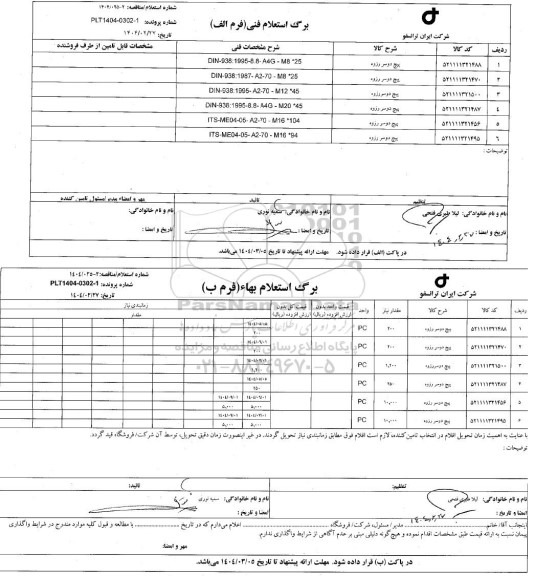 شماره استعلام/مناقصه:
برگ استعلام فنی(فرم الف)
شماره پرونده: PLT1404-0302-1
تاریخ: ۱۴۰۴/۰۲/۲۷
شرکت ایران ترانسفو
ردیف کد کالا شرح کالا شرح مشخصات فنی مشخصات قابل تامین از طرف فروشنده
۱ ۵۲۱۱۱۱۳۲۱۴۸۸ پیچ دوسر رزوه DIN-938:1995-8.8- A4G - M8 *25
۲ ۵۲۱۱۱۱۳۲۱۴۷۰ پیچ دوسر رزوه DIN-938:1987- A2-70 - M8 *25
۳ ۵۲۱۱۱۱۳۲۱۵۰۰ پیچ دوسر رزوه DIN-938:1995- A2-70 - M12 *45
۴ ۵۲۱۱۱۱۳۲۱۴۸۷ پیچ دوسر رزوه DIN-938:1995-8.8- A4G - M20 *45
۵ ۵۲۱۱۱۱۳۲۱۴۵۶ پیچ دوسر رزوه ITS-ME04-05- A2-70 - M16 *104
۶ ۵۲۱۱۱۱۳۲۱۴۹۵ پیچ دوسر رزوه ITS-ME04-05- A2-70 - M16 *94
توضیحات :
تنظیم: تائید: مهر و امضاء مدیر/مسئول تامین کننده
نام و نام خانوادگی: لیلا طیری فتحی نام و نام خانوادگی: سمیه نوری نام و نام خانوادگی:
تاریخ و امضا : تاریخ و امضا : تاریخ و امضا :
در پاکت (الف) قرار داده شود. مهلت ارائه پیشنهاد تا تاریخ ۱۴۰۴/۰۳/۰۵ می‌باشد.
شماره استعلام/مناقصه:
برگ استعلام بهاء(فرم ب)
شماره پرونده: PLT1404-0302-1
تاریخ: ۱۴۰۴/۰۲/۲۷
شرکت ایران ترانسفو
ردیف کد کالا شرح کالا مقدار نیاز واحد قیمت واحد بدون ارزش افزوده (ریال) قیمت کل بدون ارزش افزوده (ریال) زمانبندی نیاز
مقدار
۱ ۵۲۱۱۱۱۳۲۱۴۸۸ پیچ دوسر رزوه ۲۰۰ PC
۲ ۵۲۱۱۱۱۳۲۱۴۷۰ پیچ دوسر رزوه ۲۰۰ PC
۳ ۵۲۱۱۱۱۳۲۱۵۰۰ پیچ دوسر رزوه ۱,۲۰۰ PC
۴ ۵۲۱۱۱۱۳۲۱۴۸۷ پیچ دوسر رزوه ۲۵۰ PC
۵ ۵۲۱۱۱۱۳۲۱۴۵۶ پیچ دوسر رزوه ۱۰,۰۰۰ PC ۵,۰۰۰ ۵,۰۰۰
۶ ۵۲۱۱۱۱۳۲۱۴۹۵ پیچ دوسر رزوه ۱۰,۰۰۰ PC ۵,۰۰۰ ۵,۰۰۰
ParsNamadData
پایگاه اطلاع رسانی مناقصه و مزایده
۰۲۱-۸۸۳۴۹۶۷۰-۵
با عنایت به اهمیت زمان تحویل اقلام در انتخاب تامین‌کننده، لازم است اقلام فوق مطابق زمانبندی نیاز تحویل گردند. در غیر اینصورت زمان دقیق تحویل، توسط آن شرکت/ فروشگاه قید گردد.
توضیحات :
تنظیم: تائید:
نام و نام خانوادگی: لیلا طیری فتحی نام و نام خانوادگی: سمیه نوری
امضا و تاریخ : امضا و تاریخ :
اینجانب آقا/ خانم مدیر / مسئول، شرکت/ فروشگاه اعلام می‌دارم که در تاریخ با مطالعه و قبول کلیه موارد مندرج در شرایط واگذاری
پیمان نسبت به ارائه قیمت طبق مشخصات اقدام نموده و هیچ‌گونه دلیلی مبنی بر عدم آگاهی از شرایط واگذاری ندارم.
مهر و امضاء:
در پاکت (ب) قرار داده شود. مهلت ارائه پیشنهاد تا تاریخ ۱۴۰۴/۰۳/۰۵ می‌باشد.